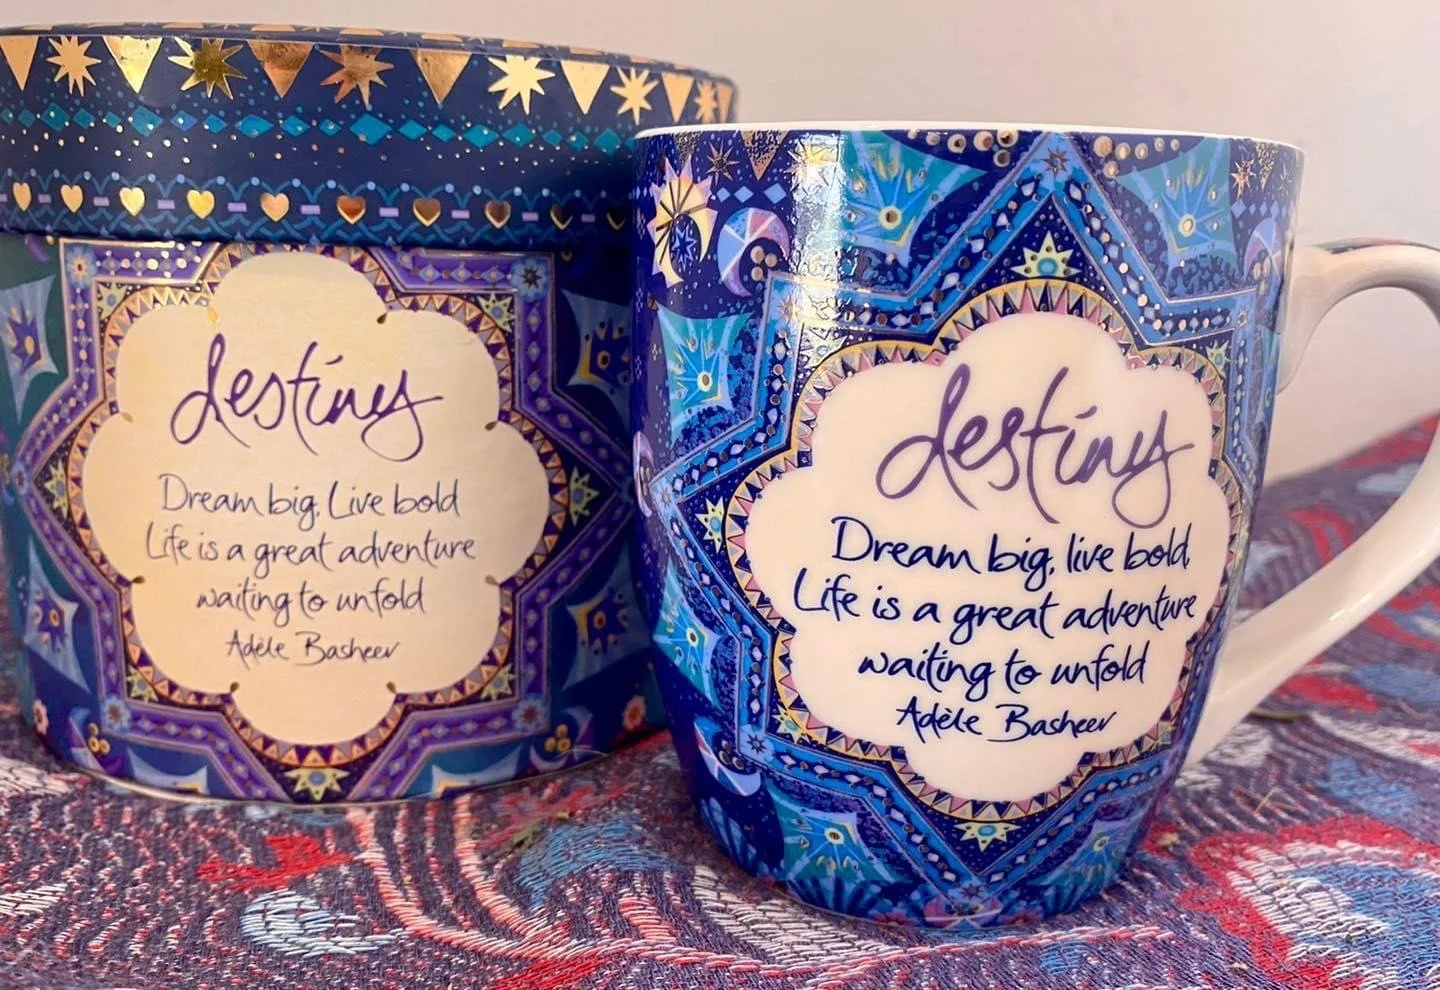 destiny
Dream big, Live bold
Life is a great adventure
waiting to unfold
Adèle Basheer
destiny
Dream big, live bold,
Life is a great adventure
waiting to unfold
Adèle Basheer